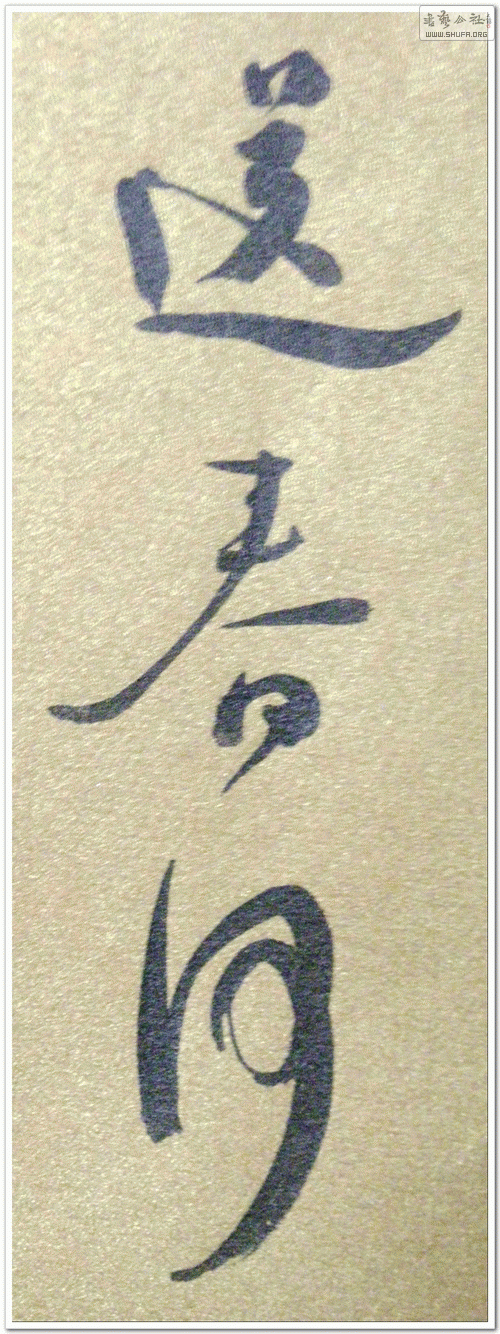 书艺公社
WWW.SHUFA.ORG
送春何